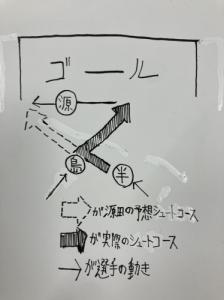 ゴール
源
島
半
が源田の予想シュートコース
が実際のシュートコース
が選手の動き